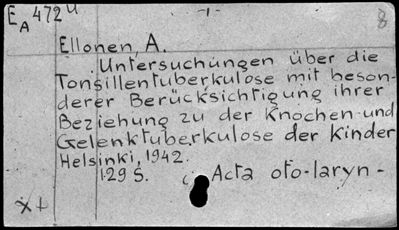 EA 472 u -1- 8
Ellonen, A.
Untersuchungen über die
Tonsillentuberkulose mit beson-
derer Berücksichtigung ihrer
Beziehung zu der Knochen- und
Gelenktuberkulose der Kinder
Helsinki, 1942.
129 S. Acta oto-laryn-